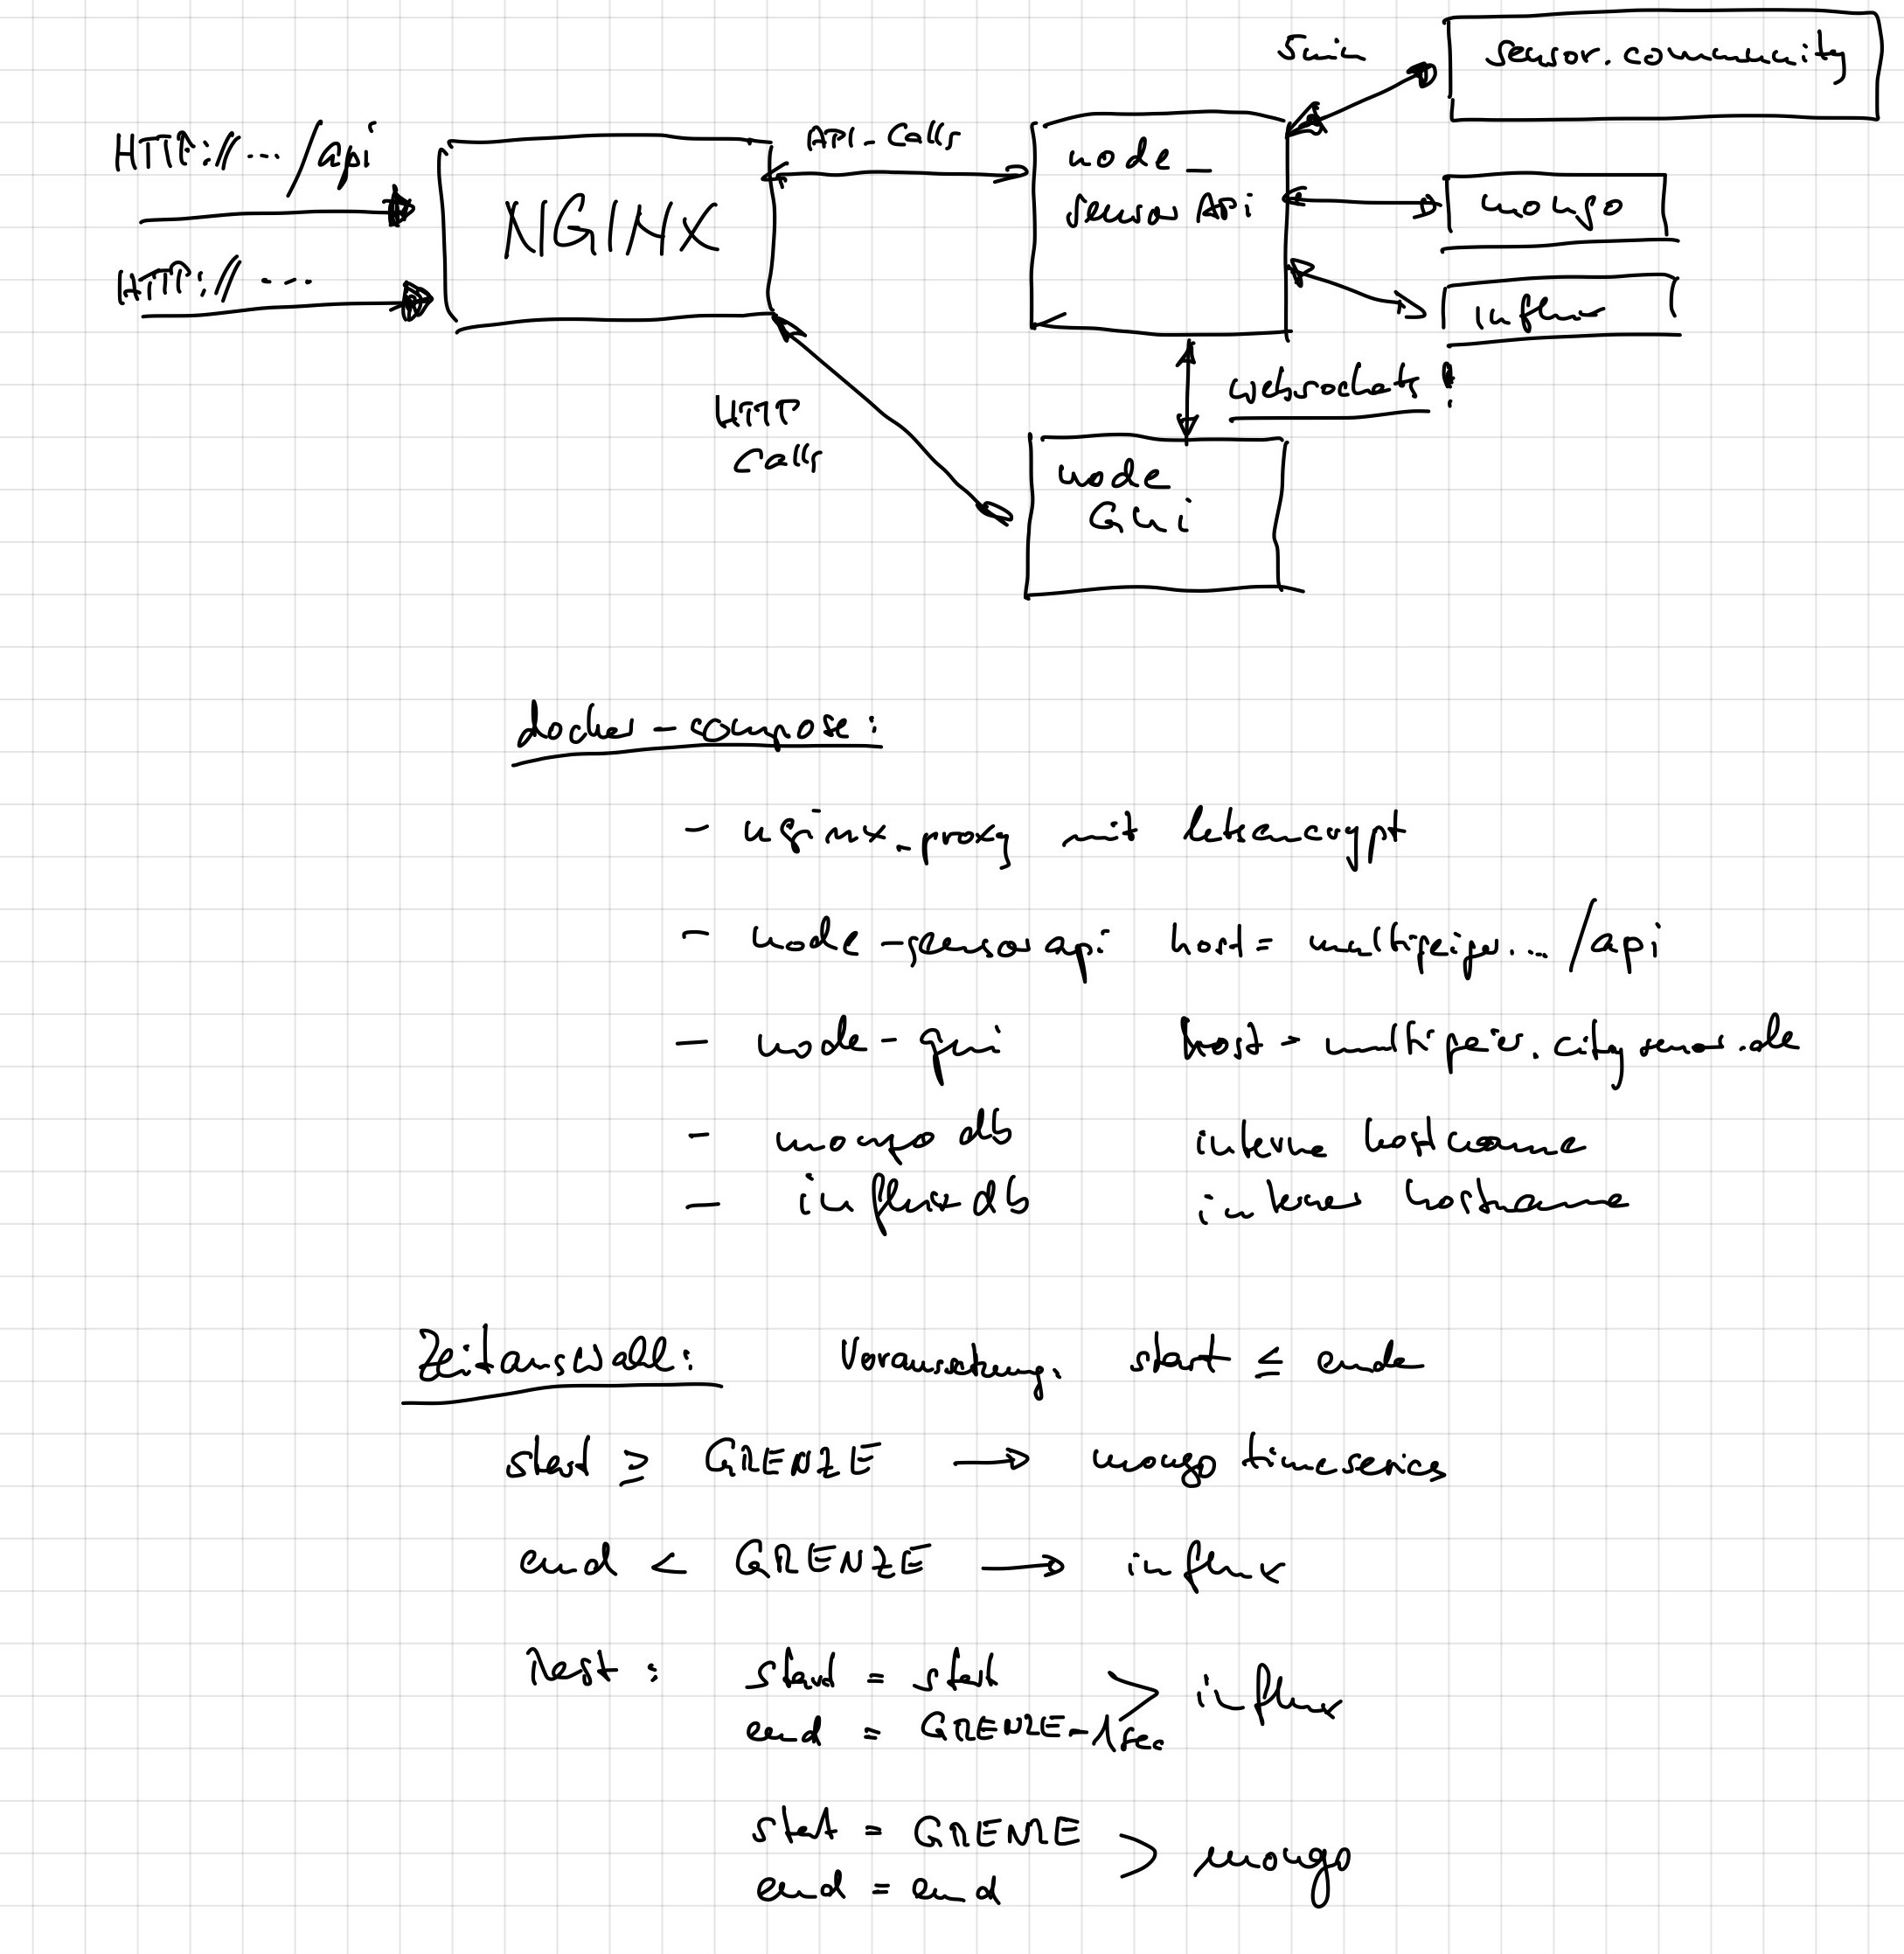 5min
sensor.community
HTTP://... /api
API-Calls
node_
sensorApi
NGINX
mongo
HTTP://....
influx
websockets !
HTTP
Calls
node
Gui
docker-compose:
- nginx_proxy mit letsencrypt
- node-sensorapi host= multi.... /api
- node-gui host = .citysensor.de
- mongo db interne hostname
- influx db interner hostname
Zeitauswahl: Voraussetzung: start ≤ ende
start ≥ GRENZE → mongo timeseries
end < GRENZE → influx
Rest: start = start
end = GRENZE-1sec > influx
start = GRENZE
end = end > mongo